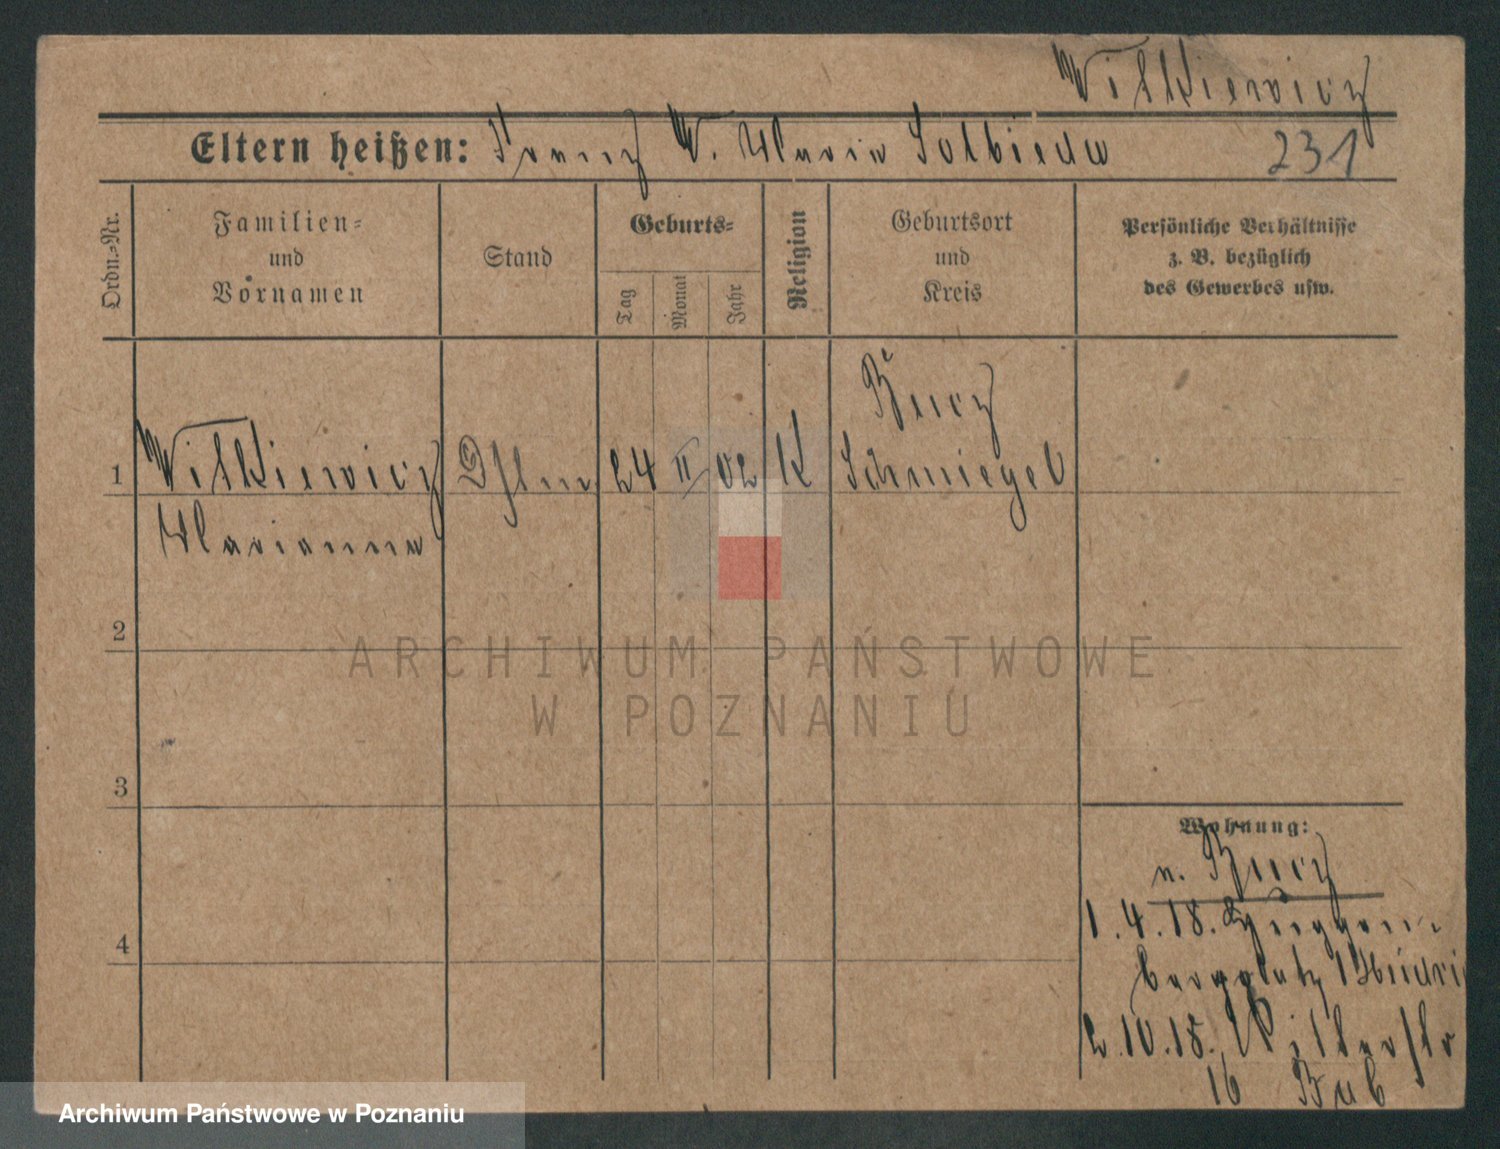 Witkiewicz
Eltern heißen: Franz W. Maria Solbieda
231
Ordn.-Nr.
Familien-
und
Vornamen
Stand
Geburts-
Tag
Monat
Jahr
Religion
Geburtsort
und
Kreis
Persönliche Verhältnisse
z. B. bezüglich
des Gewerbes usw.
1
Witkiewicz
Marianna
24 II 02 K
Schmiegel
2
ARCHIWUM PAŃSTWOWE
W POZNANIU
3
Wohnung:
n.
1.4.18.
4
2.10.18.
16
Archiwum Państwowe w Poznaniu